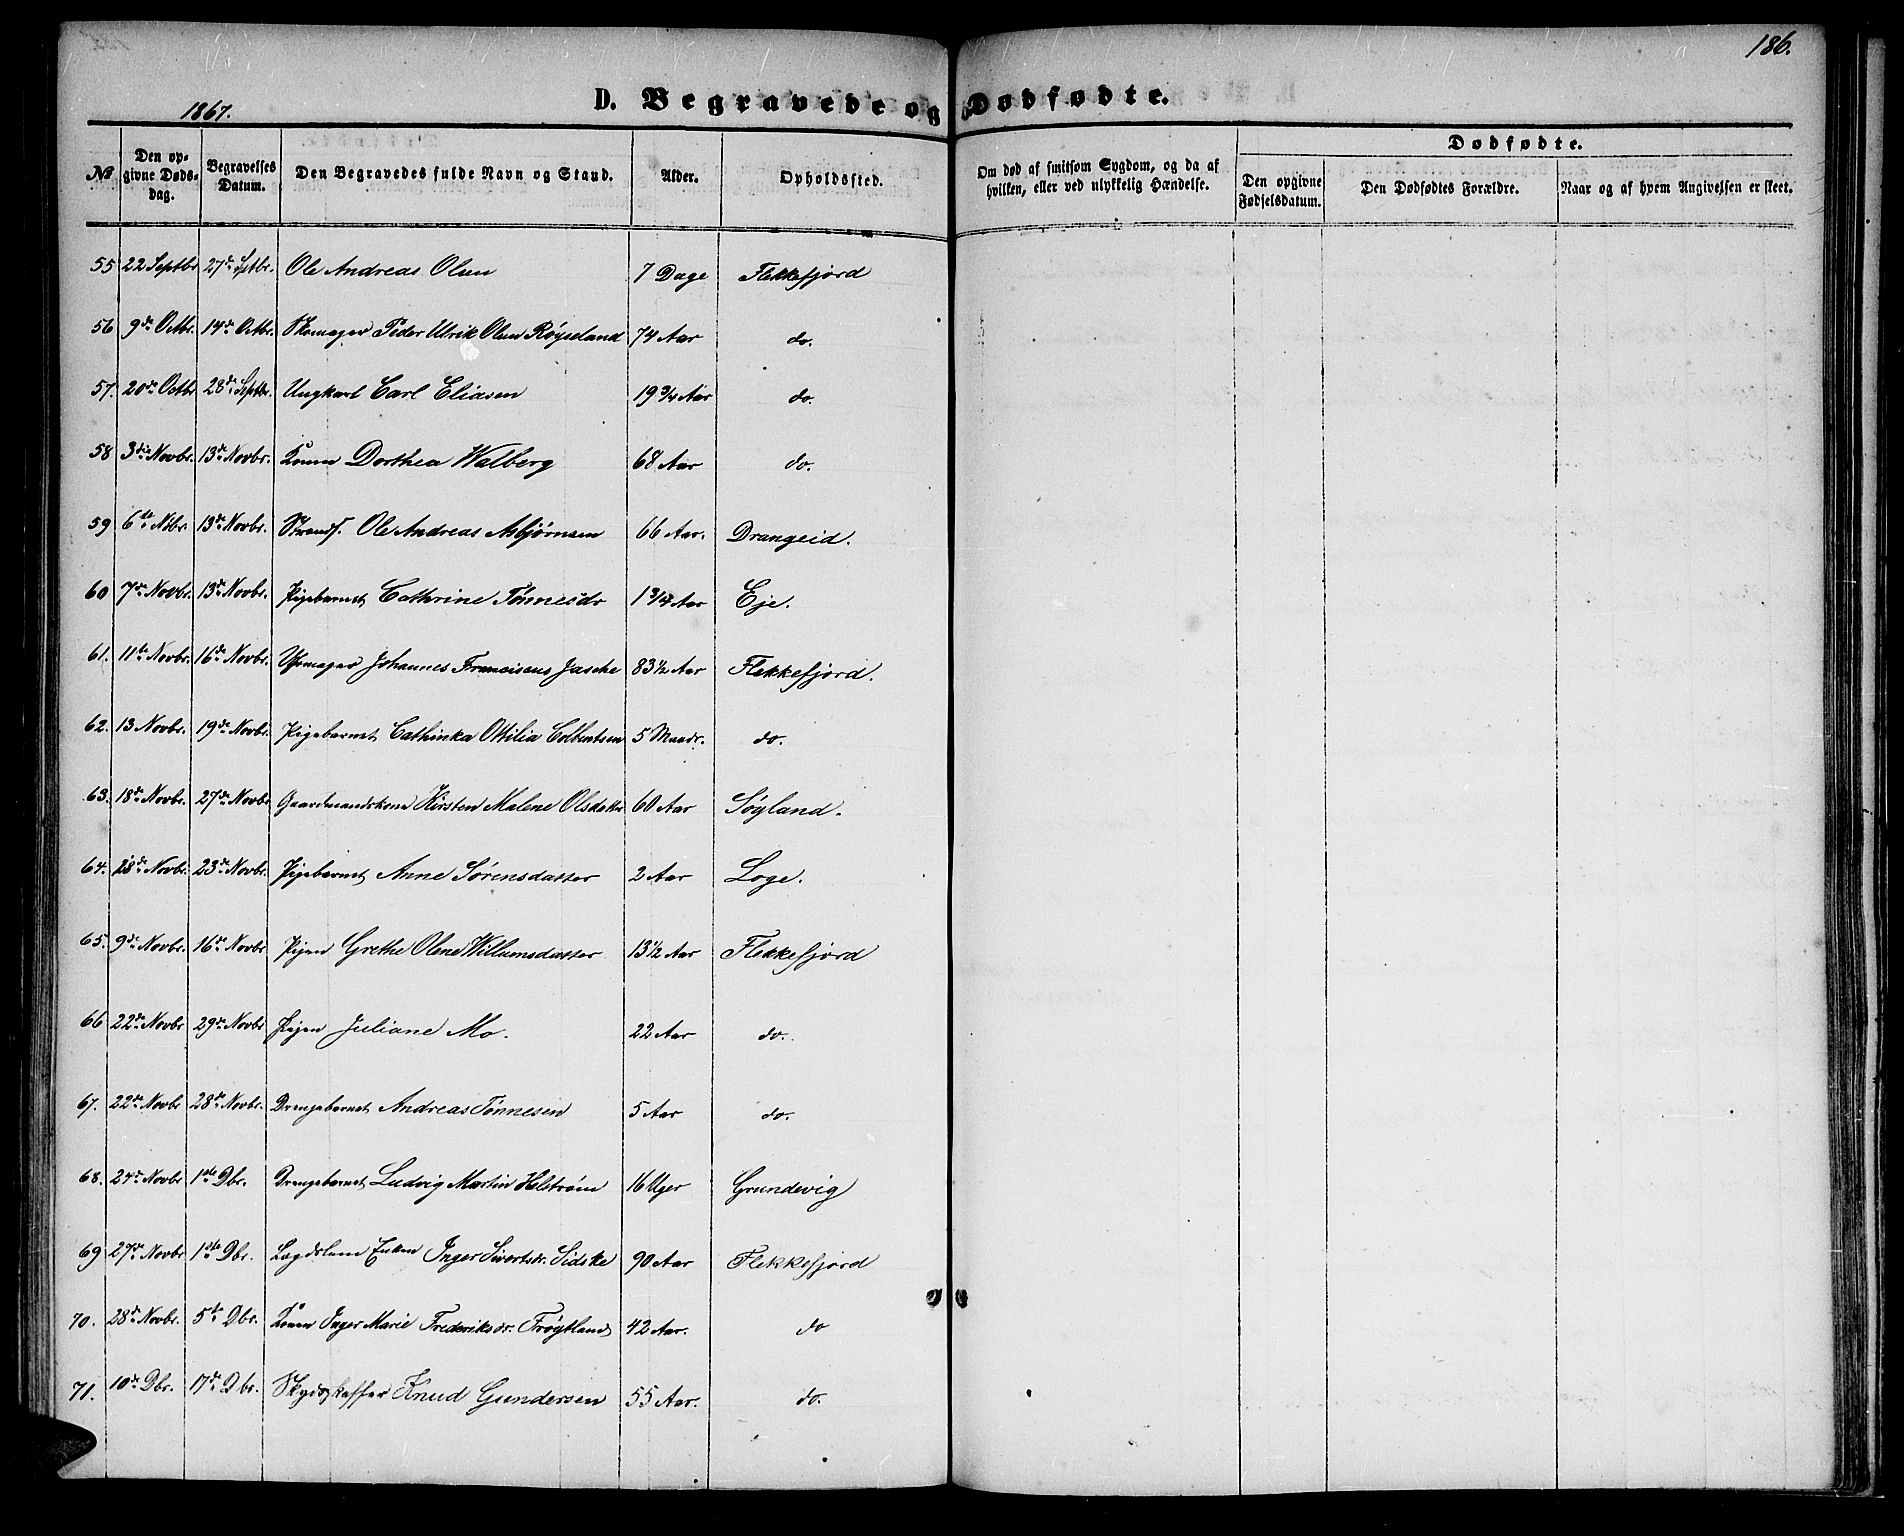 186.
1867.
D. Begravede og Dødfødte.
№ Den opgivne Dødsdag. Begravelses Datum. Den Begravedes fulde Navn og Stand. Alder. Opholdssted. Om død af smitsom Sygdom, og da af hvilken, eller ved ulykkelig Hændelse. Dødfødte. Den opgivne Fødselsdatum. Den Dødfødtes Forældre. Naar og af hvem Angivelsen er skeet.
55 22 Septbr 27de Septbr. Ole Andreas Olsen 7 Dage Flekkefjord
56 9de Octbr. 14de Octbr. Skomager Peder Ulrik Olsen Røyseland 74 Aar do.
57. 20de Octbr 28de Septbr. Ungkarl Carl Eliasen 19 3/4 Aar do.
58 3die Novbr. 13de Novbr. Konen Dorthea Walberg 68 Aar do.
59 6te Nvbr. 13de Novbr. Strands. Ole Andreas Asbjørnsen 66 Aar. Drangeid.
60 7de Novbr. 13de Novbr. Pigebarnet Cathrine Tønnesdr 1 3/4 Aar Eje.
61. 11te Novbr. 16de Novbr. Uhrmager Johannes Franciscus Jasche 83 1/2 Aar Flekkefjord.
62. 13 Novbr. 19de Novbr. Pigebarnet Cathinka Ottilia Eilertsen 5 Maadr. do.
63. 18de Novbr. 27de Novbr Gaardmandskone Kirsten Malene Olsdatter 60 Aar Søyland.
64. 18de Novbr. 23de Novbr. Pigebarnet Anne Sørensdatter 2 Aar Loge.
65. 9de Novbr. 16de Novbr Pigen Grethe Olene Willumsdatter 13 1/2 Aar Flekkefjord
66 22de Novbr 29de Novbr Pigen Juliane Mo. 22 Aar do.
67. 22de Novbr 28de Novbr. Drengebarnet Andreas Tønnesen 5 Aar do.
68. 24de Novbr 1ste Dbr. Drengebarnet Ludvig Martin Helstrøm 16 Uger Grundevig
69 27de Novbr 1ste Dbr. Lægdslem Enken Inger Sivertsdr. Sidske 90 Aar Flekkefjord
70. 28de Novbr. 5te Dbr. Konen Inger Marie Frederiksdr. Frøytland 42 Aar. do
71. 10de Dbr. 17de Dbr. Skydsskaffer Knud Gundersen 55 Aar. do.